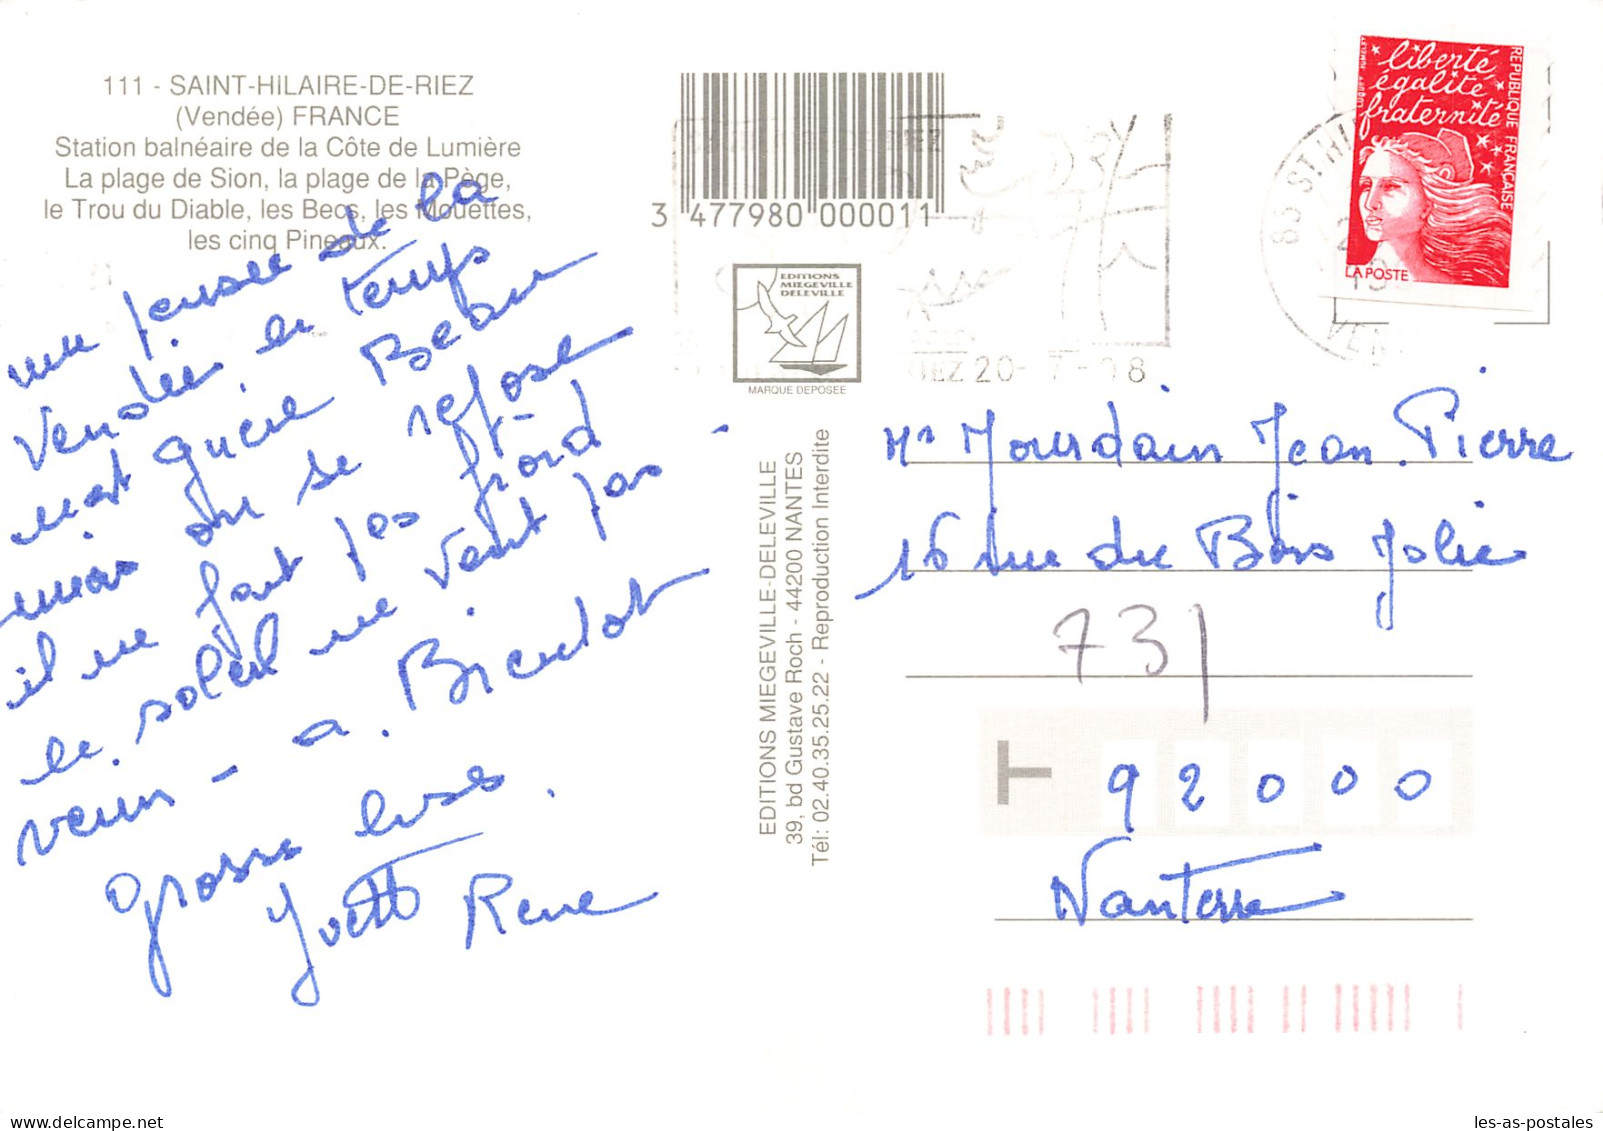 111 - SAINT-HILAIRE-DE-RIEZ
(Vendée) FRANCE
Station balnéaire de la Côte de Lumière
La plage de Sion, la plage de la Pège,
le Trou du Diable, les Becs, les Mouettes,
les cinq Pineaux.
une pensée de la
Vendée, le temps
n'est guère Beau
mais on se repose
il ne fait pas froid -
le soleil ne veut pas
venir - a Bientot
grosses bises.
Yvette Rene
3 477980 000011
EDITIONS
MIEGEVILLE
DELEVILLE
MARQUE DEPOSEE
EDITIONS MIEGEVILLE-DELEVILLE
39, bd Gustave Roch - 44200 NANTES
Tél: 02.40.35.25.22 - Reproduction Interdite
IEZ 20-7-98
85 ST.HI
VEN
liberté
égalité
fraternité
REPUBLIQUE FRANÇAISE
LA POSTE
Mr Jourdain Jean. Pierre
16 rue du Bois Joli
731
T
92000
Nanterre
les-as-postales